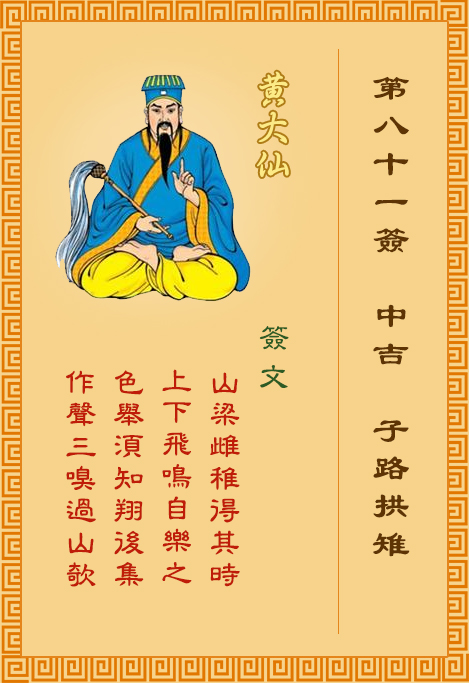 第八十一簽 中吉 子路拱雉
黄大仙
簽文
山梁雌稚得其時
上下飛鳴自樂之
色舉湏知翔後集
作聲三嗅過山欹